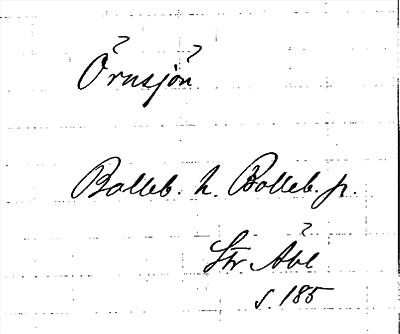 Örnsjön
Bolleb. h. Bolleb. jr.
Str. Åbl
s. 185